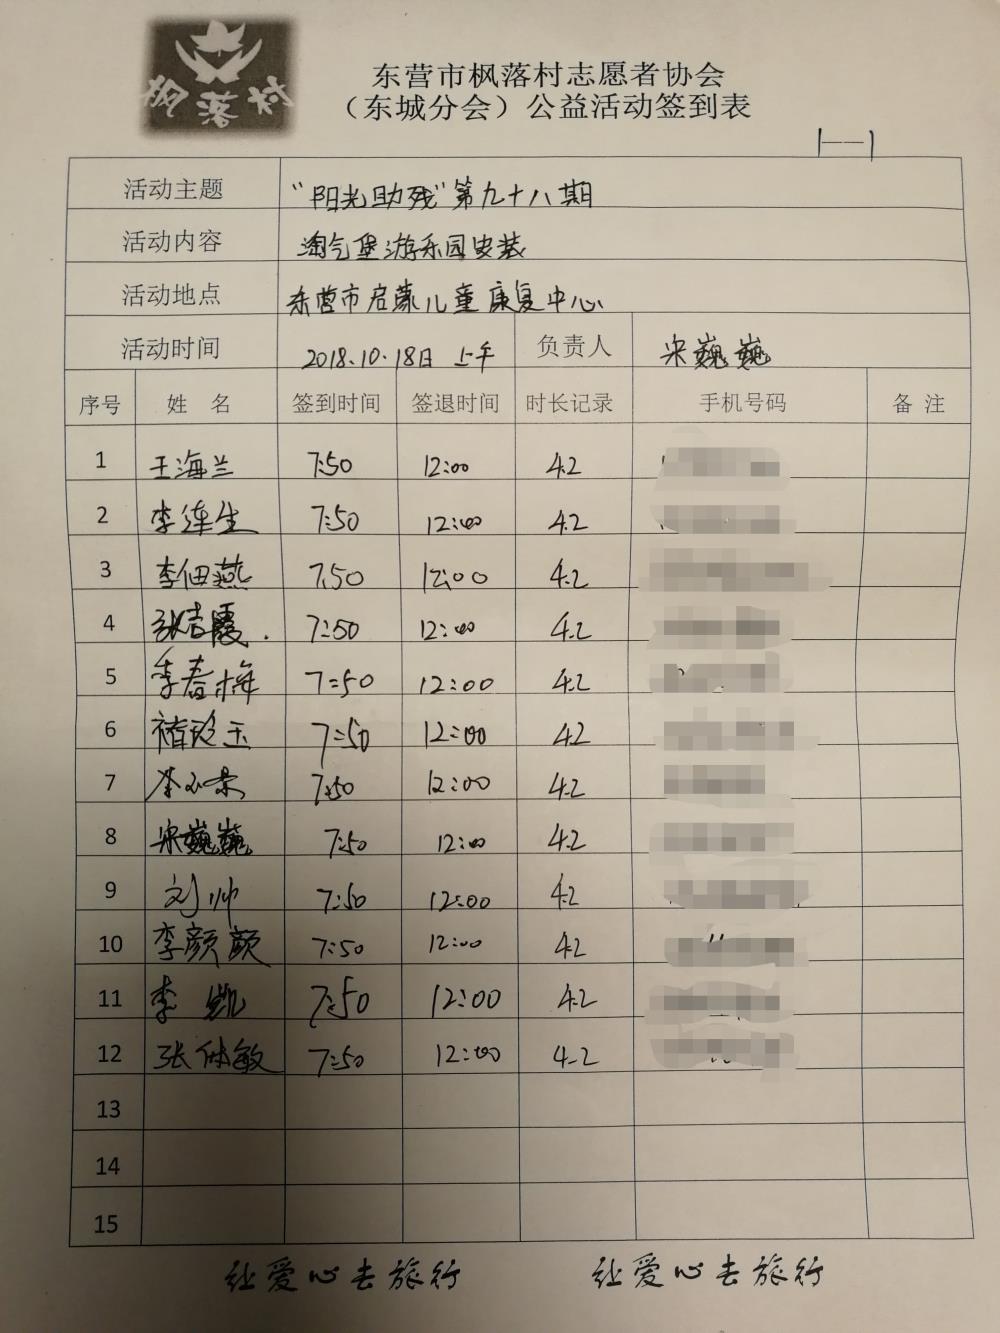 枫落村
东营市枫落村志愿者协会
（东城分会）公益活动签到表
1——1
活动主题 “阳光助残”第九十八期
活动内容 淘气堡游乐园安装
活动地点 东营市启蒙儿童康复中心
活动时间 2018.10.18日 上午 负责人 宋巍巍
序号 姓 名 签到时间 签退时间 时长记录 手机号码 备 注
1 王海兰 7:50 12:00 4.2
2 李连生 7:50 12:00 4.2
3 李佃燕 7:50 12:00 4.2
4 张吉霞 7:50 12:00 4.2
5 李春梅 7:50 12:00 4.2
6 褚玲玉 7:50 12:00 4.2
7 7:50 12:00 4.2
8 宋巍巍 7:50 12:00 4.2
9 刘帅 7:50 12:00 4.2
10 李颜颜 7:50 12:00 4.2
11 李凯 7:50 12:00 4.2
12 张休敏 7:50 12:00 4.2
13
14
15
让爱心去旅行 让爱心去旅行